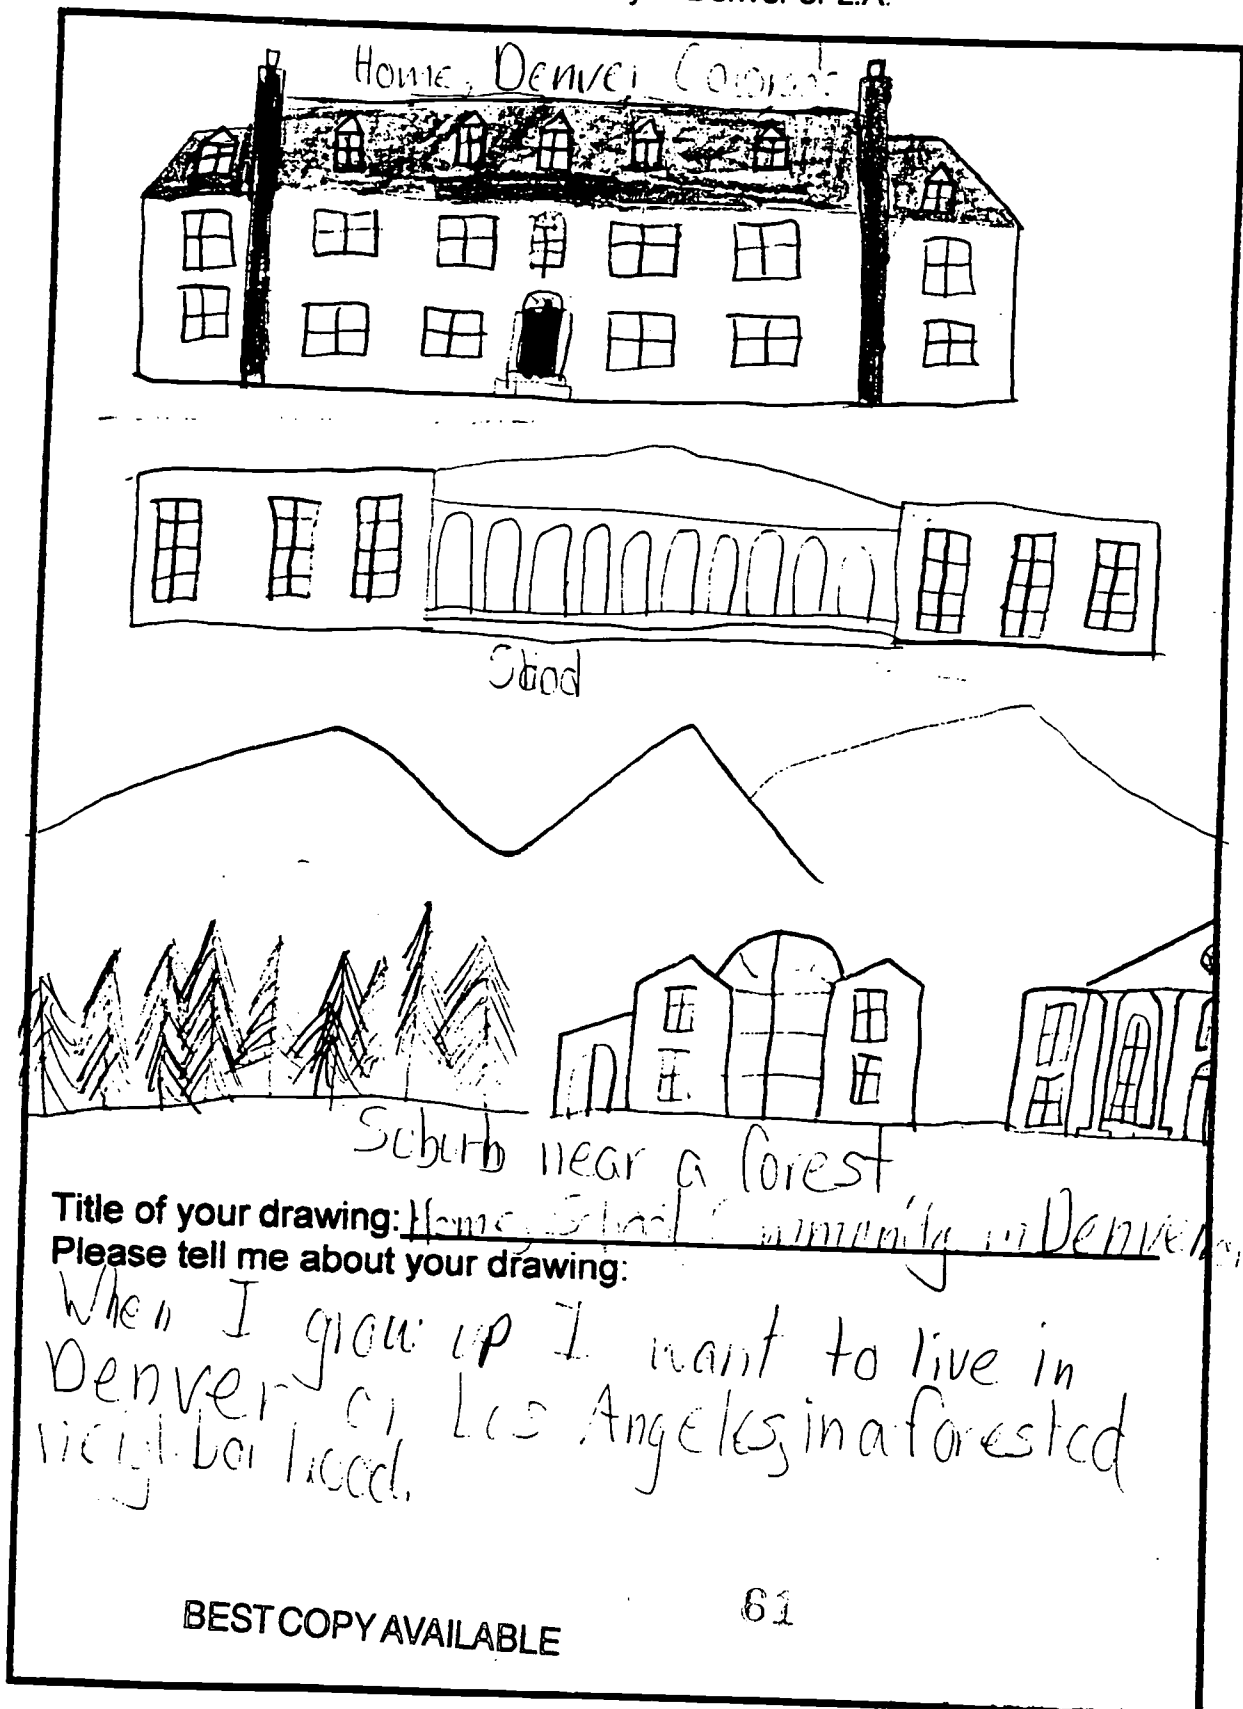 Denver or L.A.
Home, Denver Colorado
School
Suburb near a forest
Title of your drawing: Home, School Community in Denver
Please tell me about your drawing:
When I grow up I want to live in
Denver or Los Angeles, in a forested
neighborhood.
BEST COPY AVAILABLE
61